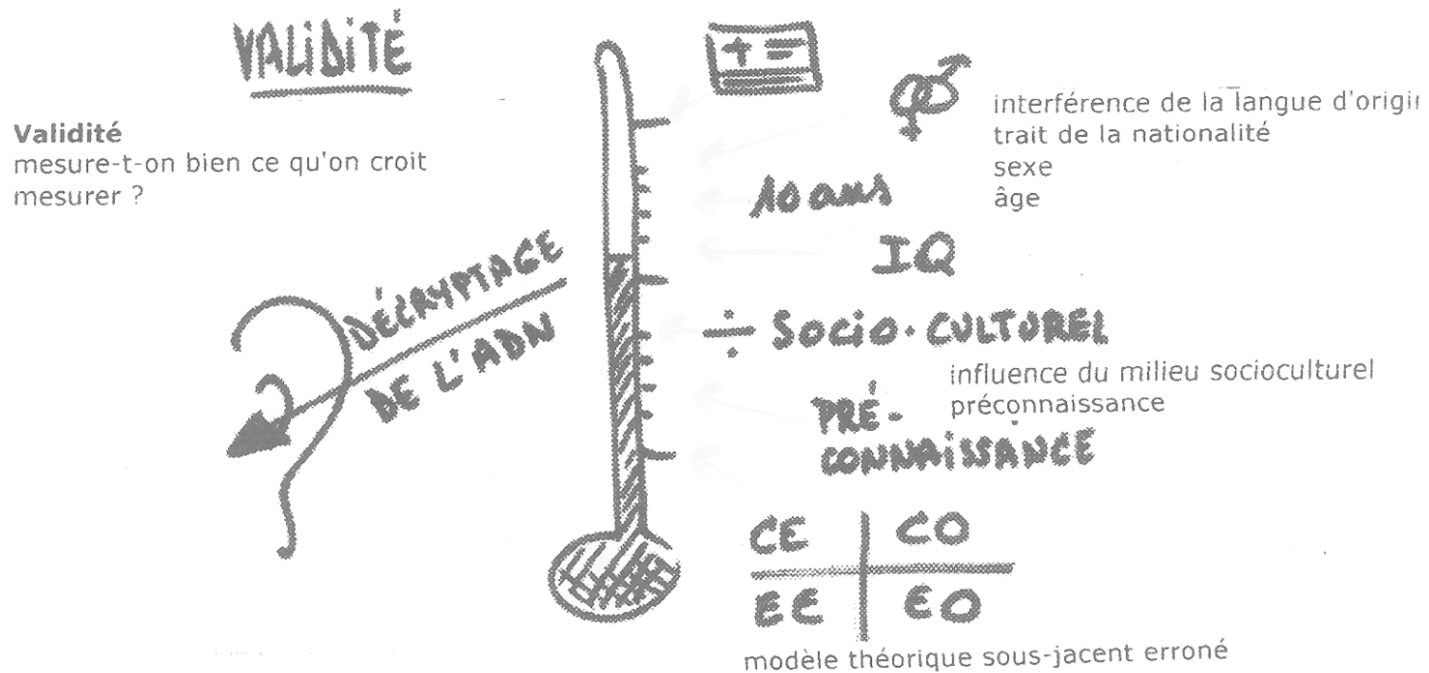 VALIDITÉ
Validité
mesure-t-on bien ce qu'on croit
mesurer ?
DÉCRYPTAGE
DE L'ADN
+ =
interférence de la langue d'origi
trait de la nationalité
sexe
âge
10 ans
IQ
÷ SOCIO-CULTUREL
influence du milieu socioculturel
préconnaissance
PRÉ-
CONNAISSANCE
CE CO
EE EO
modèle théorique sous-jacent erroné